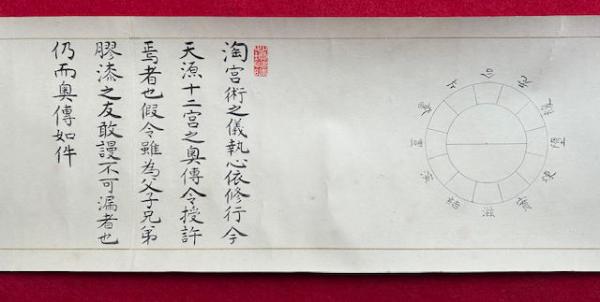 淘宮術之儀執心依修行今
天源十二宮之奥傳令授許
焉者也假令雖為父子兄弟
膠漆之友敢謾不可漏者也
仍而奥傳如件
合
老
滋